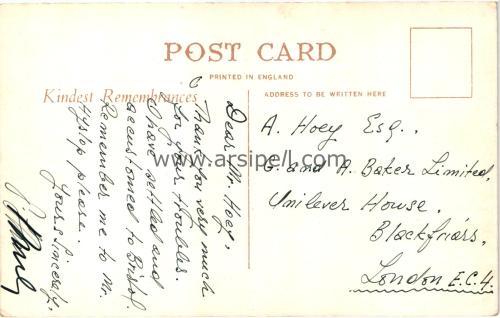 POST CARD
PRINTED IN ENGLAND
Kindest Remembrances
ADDRESS TO BE WRITTEN HERE
Dear Mr. Hoey,
Thanks for very much
for your troubles.
I have settled and
accustomed to Bristol.
Remember me to Mr.
Hyslop please.
Yours Sincerely,
A. Hoey Esq.,
G. and A. Baker Limited,
Unilever House,
Blackfriars,
London E.C.4.
www.arsipell.com